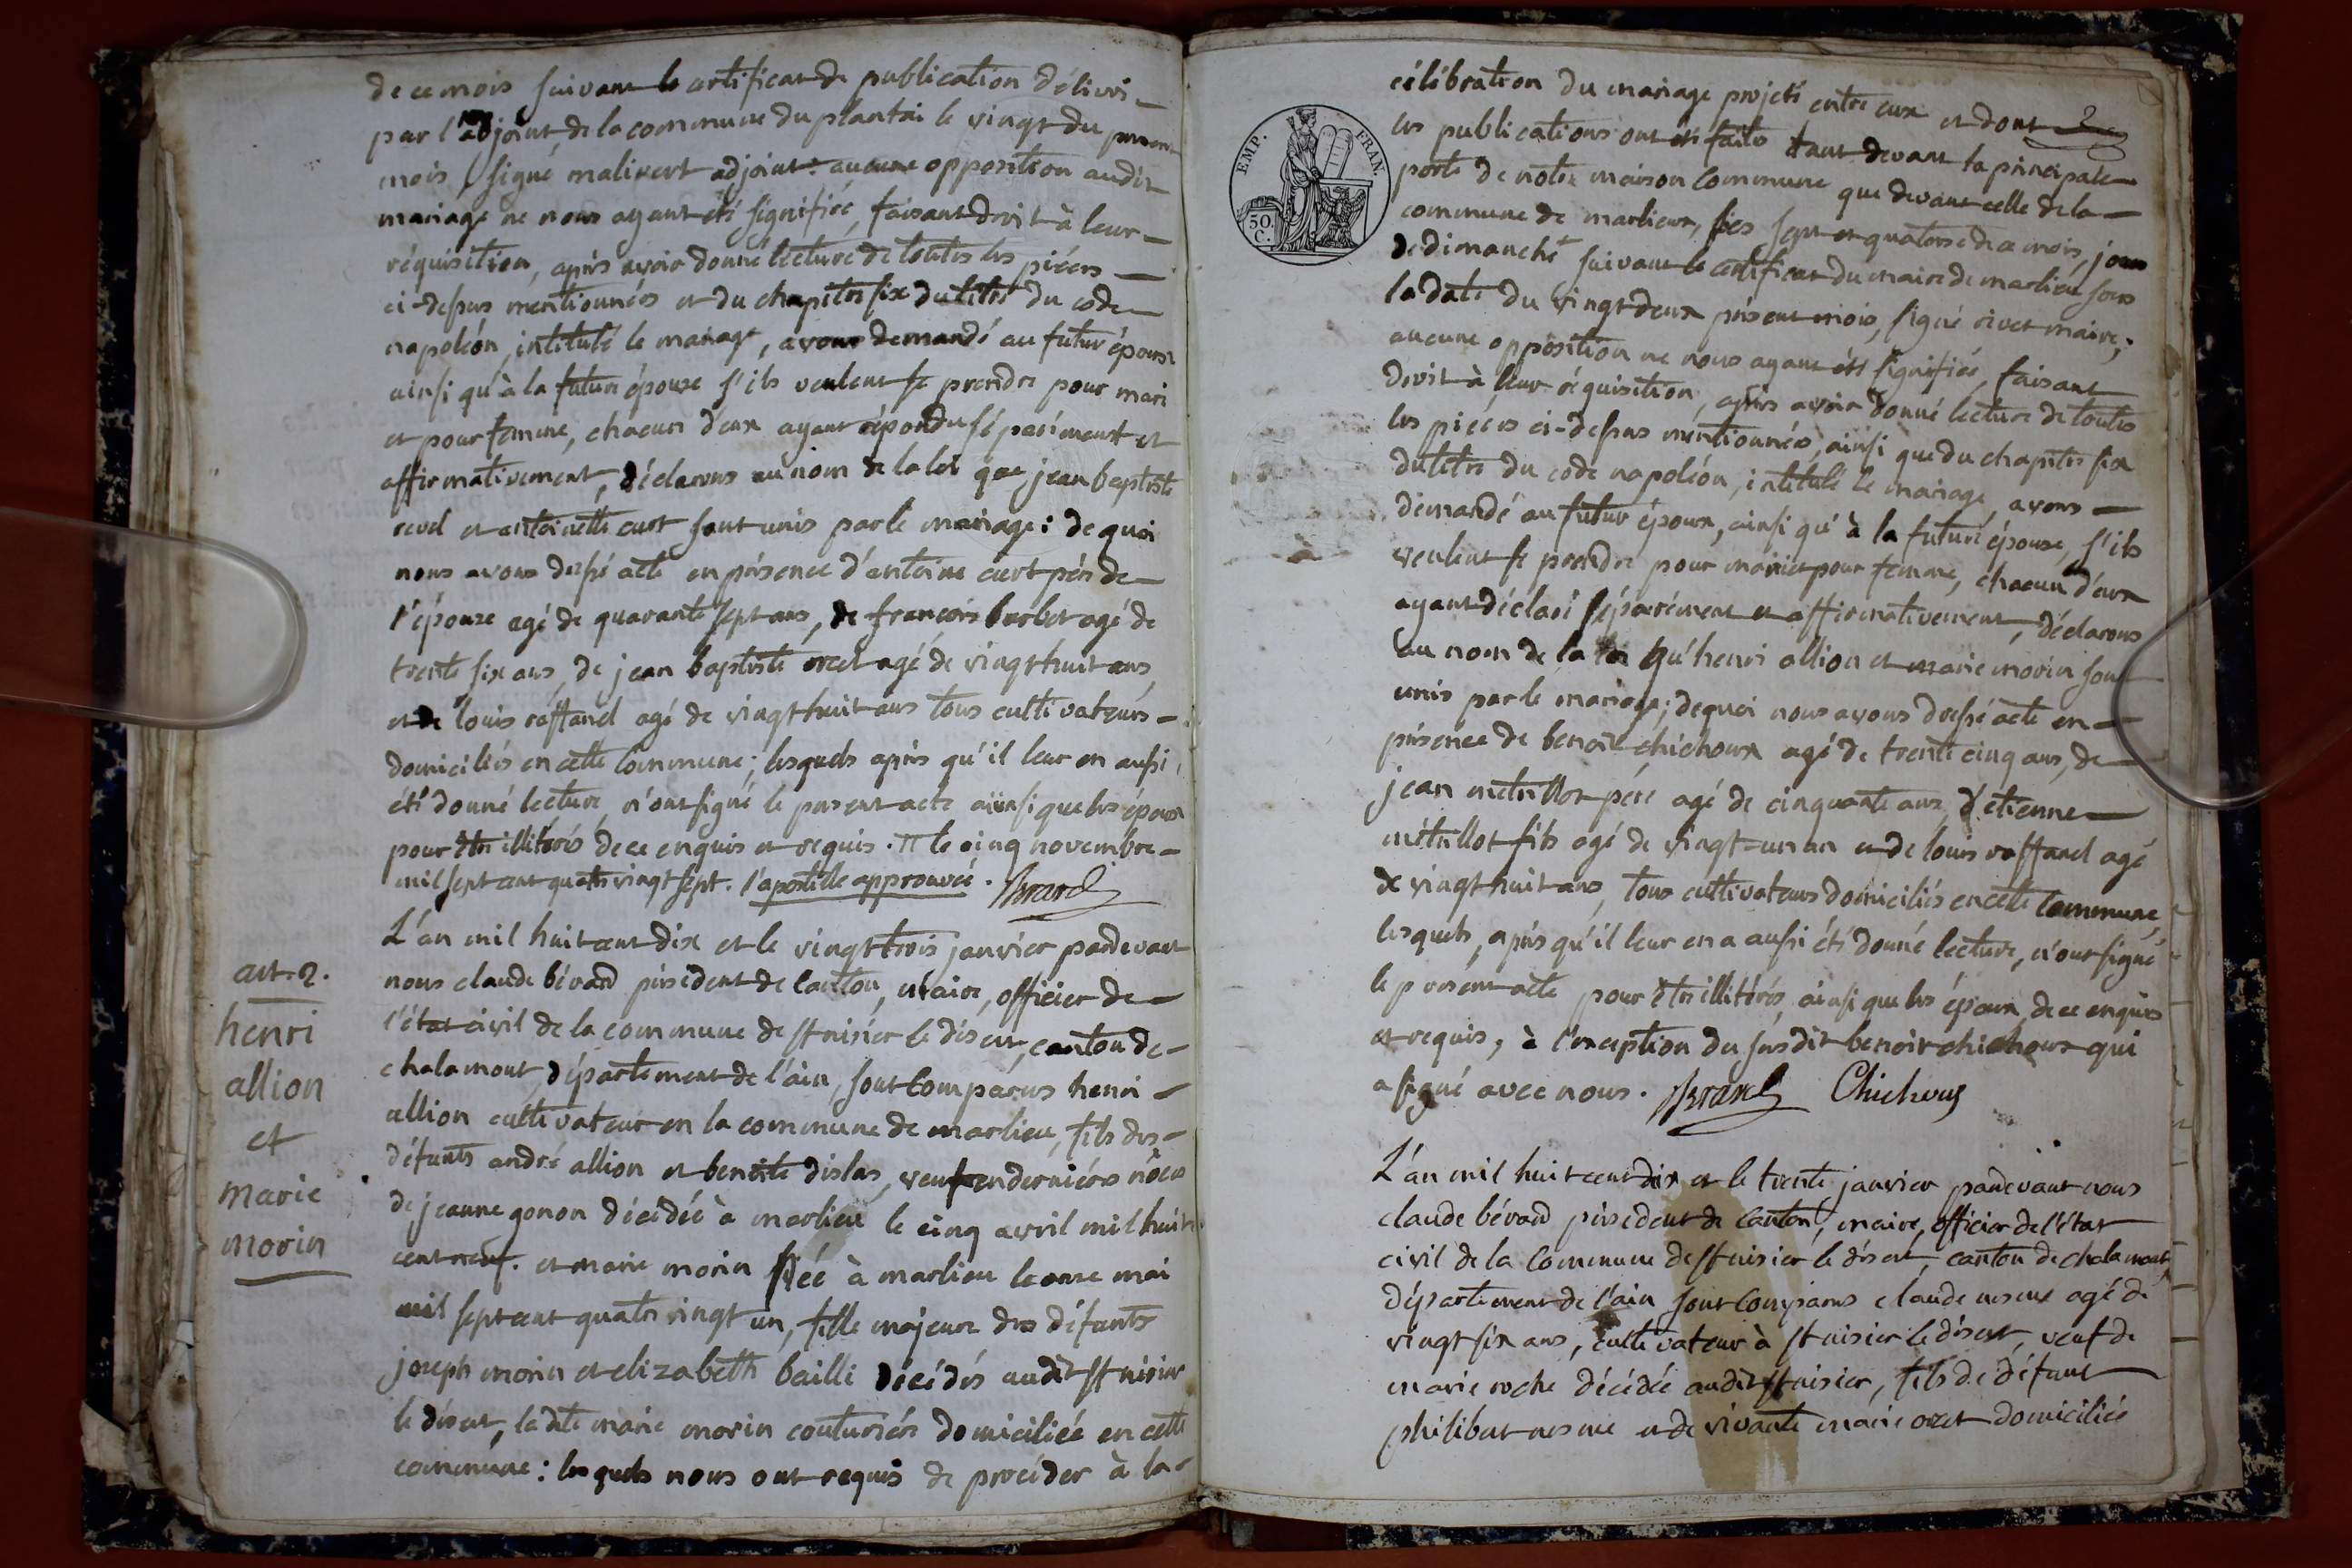 de ce mois suivant le certificat de publication délivri
par l'adjoint de la commune du plantai le vingt du present
mois signé malivert adjoint. aucune opposition audit
mariage ne nous ayant été signifiée, faisant droit à leur
réquisition, après avoir donné lecture de toutes les piéces
ci-dessus mentionnées et du chapitre six du titre du code
napoléon, intitulé le mariage, avons demandé au futur époux
ainsi qu'à la future épouze s'ils veulent se prendre pour mari
et pour femme, chacun d'eux ayant répondu séparément et
affirmativement, déclarons au nom de la loi que jean baptiste
revel et antoinette curt sont unis par le mariage : de quoi
nous avons dressé acte en présence d'antoine curt pére de
l'épouze agé de quarante sept ans, de françois barbet agé de
trente six ans, de jean baptiste orcet agé de vingt huit ans,
et de louis raffanel agé de vingt huit ans tous cultivateurs
domiciliés en cette commune ; lesquels après qu'il leur en aussi
été donné lecture, n'ont signé le present acte aiinsi que les époux
pour être illitérés de ce enquis et requis. π le cinq novembre
mil sept cent quatre vingt sept. l'apostille approuvée. Bérard
art. 2.
henri
allion
et
marie
morin
L'an mil huit cent dix et le vingt trois janvier pardevant
nous claude bérard président de canton, maire, officier de
l'état civil de la commune de st nisier le désert, canton de
chalamont, département de l'ain, sont comparus henri
allion cultivateur en la commune de marlieu, fils des
défunts andré allion et benoite dislas, veuf en derniéres nôces
de jeanne gonon décédée à marlieu le cinq avril mil huit
cent neuf. et marie morin née à marlieu le onze mai
mil sept cent quatre vingt un, fille majeure des défunts
joseph morin et elizabeth bailli décédés audit st nisier
le désert, la dite marie morin couturière domiciliée en cette
commune : lesquels nous ont requis de procéder à la
EMP. FRAN.
50.
C.
célébration du mariage projeté entre eux et dont
les publications ont été faites tant devant la principale
porte de notre maison commune que devant celle de la
commune de marlieux, les sept et quatorze de ce mois, jours
de dimanche suivant le certificat du maire de marlieu sous
la date du vingt deux présent mois, signé rivet maire ;
aucune opposition ne nous ayant été signifiée, faisant
droit à leur réquisition, après avoir donné lecture de toutes
les piéces ci-dessus mentionnées, ainsi que du chapitre six
du titre du code napoléon, intitulé le mariage, avons
demandé au futur époux, ainsi qu'à la future épouze, s'ils
veulent se prendre pour mari et pour femme, chacun d'eux
ayant déclaré séparément et affirmativement, déclarons
au nom de la loi qu'henri allion et marie morin sont
unis par le mariage ; de quoi nous avons dressé acte en
présence de benoit chichoux agé de trente cinq ans, de
jean métrillot pére agé de cinquante ans, d'etienne
métrillot fils agé de vingt-un an et de louis raffanel agé
de vingt huit ans, tous cultivateurs domiciliés en cette commune,
lesquels, après qu'il leur en a aussi été donné lecture, n'ont signé
le present acte pour être illitérés, ainsi que les époux, de ce enquis
et requis, à l'exception du susdit benoit chichoux qui
a signé avec nous. Bérard Chichoux
L'an mil huit cent dix et le trente janvier pardevant nous
claude bérard président de canton, maire, officier de l'état
civil de la commune de st nisier le désert, canton de chalamont,
département de l'ain sont comparus claude nesme agé de
vingt six ans, cultivateur à st nisier le désert, veuf de
marie roche décédée audit st nisier, fils de défunt
philibert nesme et de vivante marie orcet domiciliée